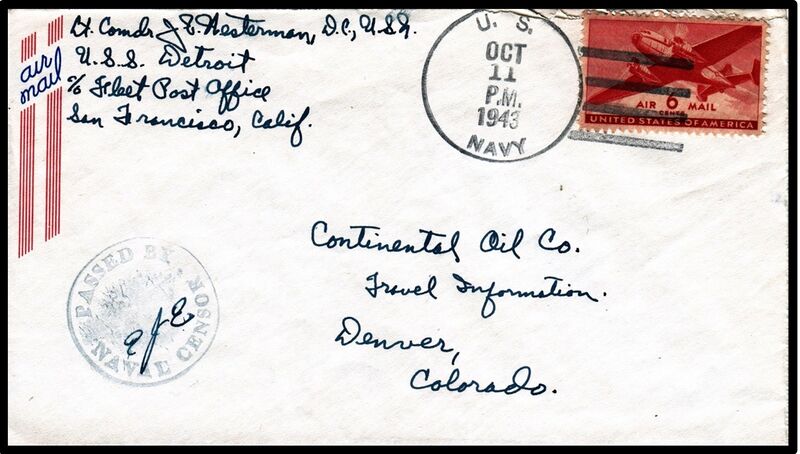 Lt. Comdr. J. E. Westerman, D.C., U.S.N.
U.S.S. Detroit
c/o Fleet Post Office
San Francisco, Calif.
air
mail
U. S.
OCT
11
P.M.
1943
NAVY
AIR 6 MAIL
CENTS
UNITED STATES OF AMERICA
Continental Oil Co.
Travel Information.
Denver,
Colorado.
PASSED BY
NAVAL CENSOR